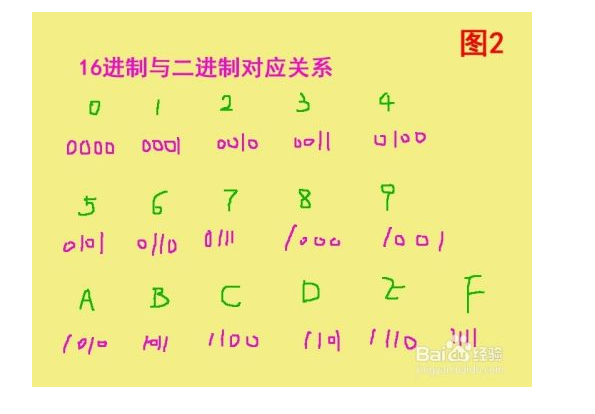 图2
16进制与二进制对应关系
0 1 2 3 4
0000 0001 0010 0011 0100
5 6 7 8 9
0101 0110 0111 1000 1001
A B C D E F
1010 1011 1100 1101 1110 1111
Bai 经验
jingyan.baidu.com